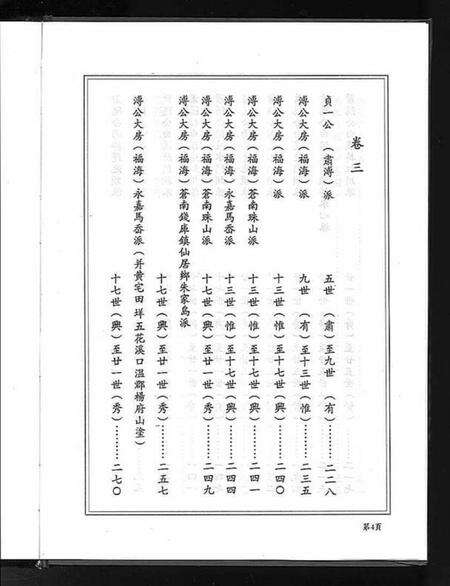 卷三
貞一公 （肅溥）派 五世（肅）至九世（有）………二二八
溥公大房（福海）派 九世（有）至十三世（惟）………二三五
溥公大房（福海）派 十三世（惟）至十七世（興）………二四〇
溥公大房（福海）蒼南珠山派 十三世（惟）至十七世（興）………二四一
溥公大房（福海）永嘉馬岙派 十三世（惟）至十七世（興）………二四四
溥公大房（福海）蒼南珠山派 十七世（興）至廿一世（秀）………二四九
溥公大房（福海）蒼南錢庫鎮仙居鄉朱家島派
十七世（興）至廿一世（秀）………二五七
溥公大房（福海）永嘉馬岙派（并黄宅田垟五花溪口溫郡楊府山塗）
十七世（興）至廿一世（秀）………二七〇
第4頁